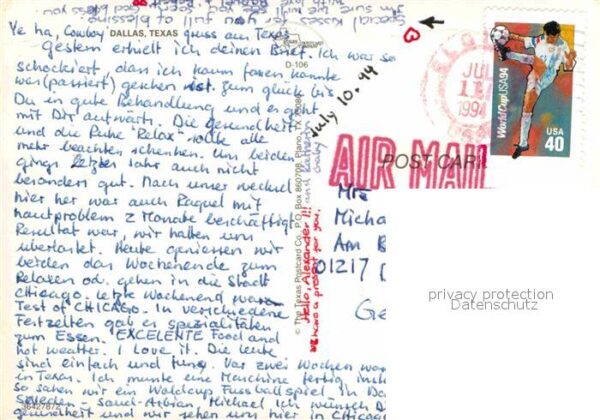 Special Kisses for you
Ye ha, Cowboy gruss aus Texas
DALLAS, TEXAS
gestern erhielt ich deinen Brief. Ich war so
schockiert dass ich kaum fassen konnte
was (passiert) geschen ist. zum glück bis
Du in gute Behandlung und es geht
mit Dir aufwärts. Die gesundheit
und die Ruhe "Relax" sollte alle
mehr beachten schenken. Um beiden
gings letztes Jahr auch nicht
besonders gut. Nach unser wechsel
hier her war auch Raquel mit
hautproblem 2 Monate beschäftigt
Resultat war, wir halten uns
überlastet. Heute geniessen wir
beiden das Wochenende zum
Relaxen od. gehen in die Stadt
Chicago. Letzte Wochenend war
Test of CHICAGO. In verschiedene
Festzelten gab es spezialitäten
zum Essen. EXCELENTE Food and
hot weather. I love it. Die leute
sind einfach und Vor zwei Wochen war
in Texas. Ich musste eine Maschine fertig
so sahen wir ein Waldcup Fussballspiel in Da
Sweden - Saud-Arabien Michael Ich wünsch D
gesundheit und wir sehen uns hier in Chicago
36427872
D-106
July 10. 94
© The Texas Postcard Co., P.O. Box 860708, Plano, TX 75086
Hello, Alexander!!!
we have a present for you.
JUL
1994
WorldCupUSA94
USA
40
AIR MAIL
POST CAR
Mrs
Micha
Am B
01217
Ge
privacy protection
Datenschutz